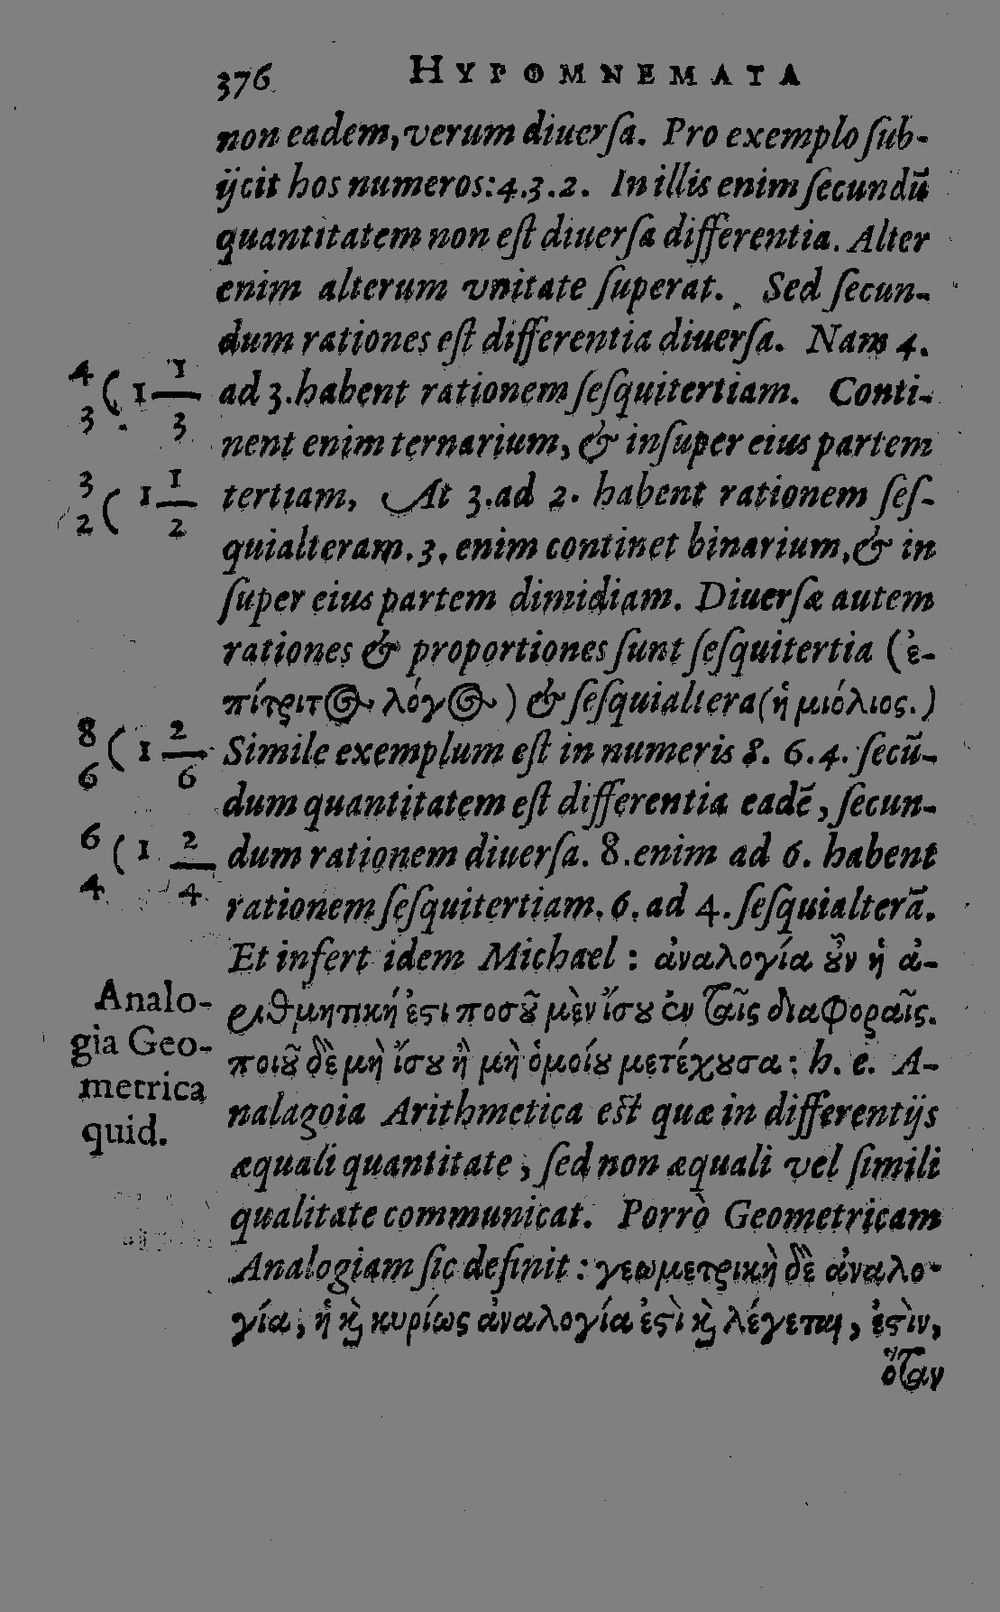 376 HYPOMNEMATA
non eadem, verum diuerſa. Pro exemplo ſub-
ijcit hos numeros: 4.3.2. In illis enim ſecundũ
quantitatem non eſt diuerſa differentia. Alter
enim alterum vnitate ſuperat. Sed ſecun-
dum rationes eſt differentia diuerſa. Nam 4.
ad 3. habent rationem ſeſquitertiam. Conti-
nent enim ternarium, & inſuper eius partem
tertiam, At 3. ad 2. habent rationem ſeſ-
quialteram. 3. enim continet binarium, & in
ſuper eius partem dimidiam. Diuerſæ autem
rationes & proportiones ſunt ſeſquitertia (ἐ-
πίτριτος λόγος) & ſeſquialtera (ἡ μιόλιος.)
Simile exemplum eſt in numeris 8. 6. 4. ſecũ-
dum quantitatem eſt differentia eadẽ, ſecun-
dum rationem diuerſa. 8. enim ad 6. habent
rationem ſeſquitertiam. 6. ad 4. ſeſquialterã.
Et infert idem Michael: ἀναλογία ȣ̓͂ν ἡ ἀ-
ριθμητική ἐϛι ποσȣ͂ μὲν ἴσȣ ἐν ταῖς διαφοραῖς.
ποιȣ͂ δὲ μὴ ἴσȣ ἢ μὴ ὁμοίȣ μετέχȣσα: h. e. A-
nalagoia Arithmetica eſt quæ in differentijs
æquali quantitate, ſed non æquali vel ſimili
qualitate communicat. Porrò Geometricam
Analogiam ſic definit: γεωμετρικὴ δὲ ἀναλο-
γία, ἡ ϗ̀ κυρίως ἀναλογία ἐϛὶ ϗ̀ λέγεται, ἐϛὶν,
ὅταν
4
3 ( 1 1/3
3
2 ( 1 1/2
8
6 ( 1 2/6
6
4 ( 1 2/4
Analo-
gia Geo-
metrica
quid.